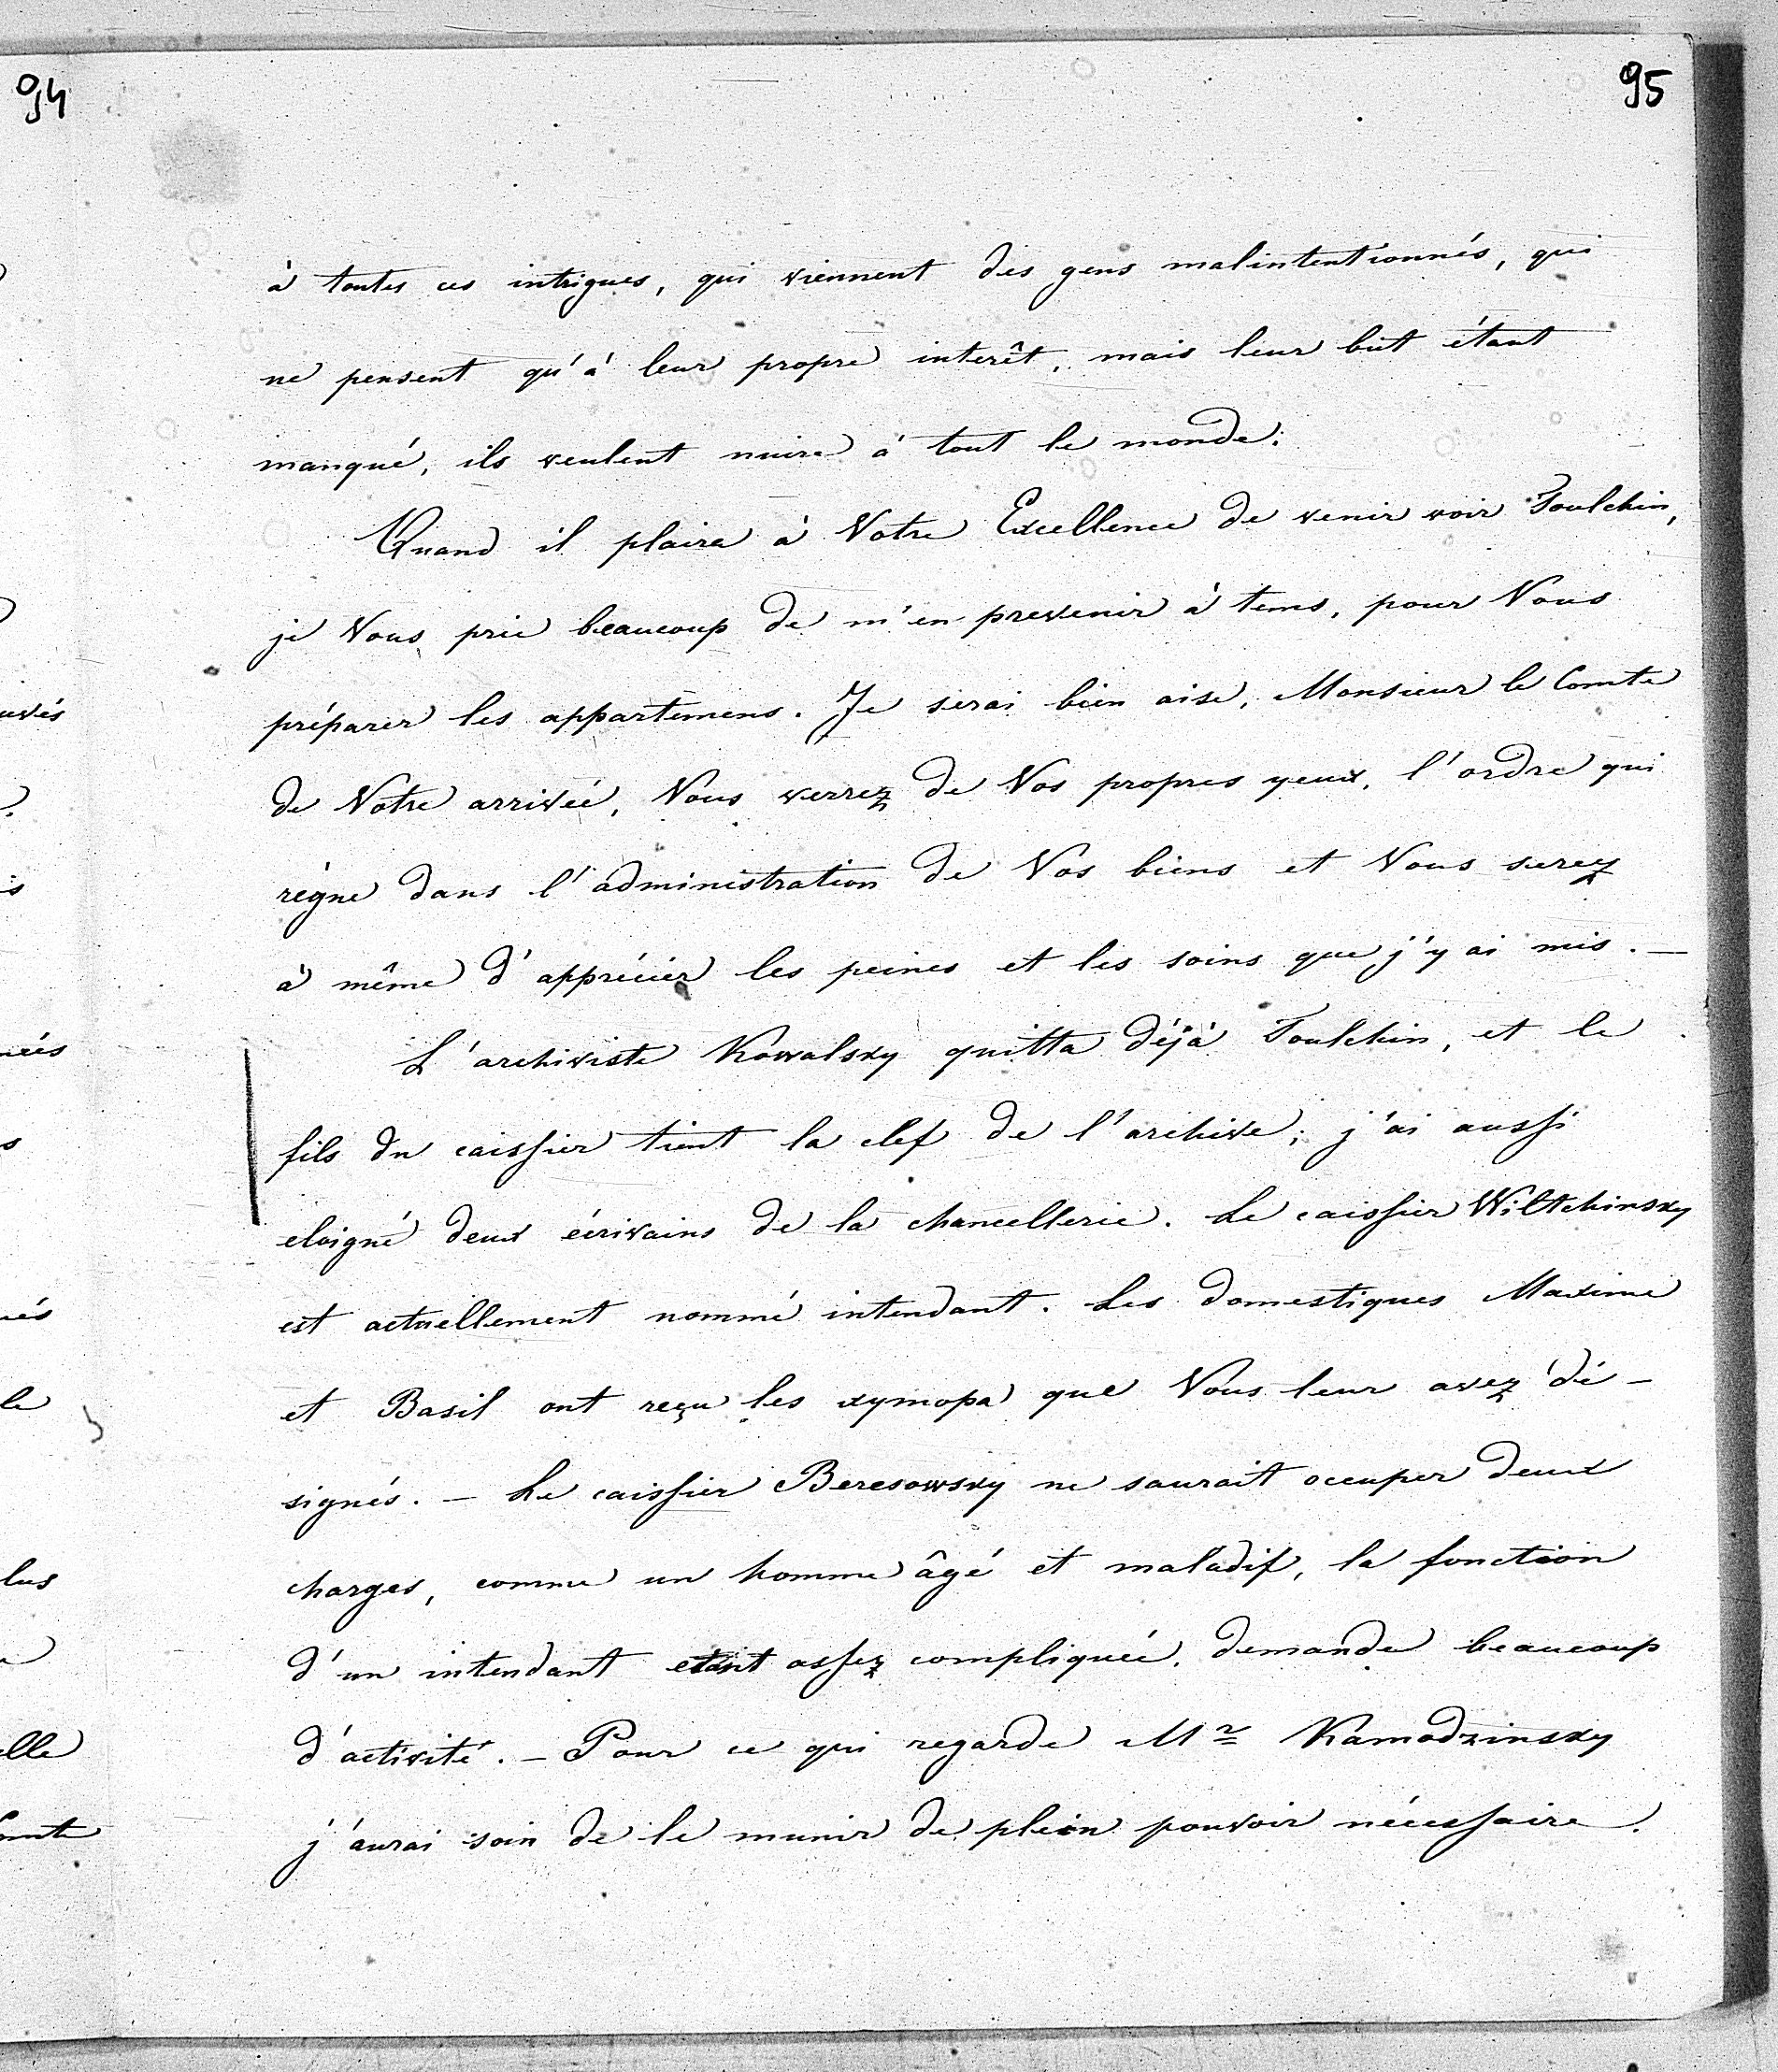 94
95
à toutes ces intrigues, qui viennent des gens malintentionnés, qui
ne pensent qu'à leur propre interêt, mais leur but étant
manqué, ils veulent nuire à tout le monde.
Quand il plaira à Votre Excellence de venir voir Toulchin,
je Vous prie beaucoup de m'en prevenir à tems, pour Vous
préparer les appartemens. Je serai bien aise, Monsieur le Comte
de Votre arrivée, Vous verrez de Vos propres yeux, l'ordre qui
règne dans l'administration de Vos biens et Vous serez
à même d'apprécier les peines et les soins que j'y ai mis. —
L'archiviste Kowalsky quitta déjà Toulchin, et le
fils du caissier tient la clef de l'archive; j'ai aussi
eloigné deux écrivains de la chancellerie. Le caissier Wiltchinsky
est actuellement nommé intendant. Les domestiques Maxime
et Basil ont reçu les хутора que Vous leur avez dé-
signés. — Le caissier Beresowsky ne saurait occuper deux
charges, comme un homme âgé et maladif, la fonction
d'un intendant etant assez compliquée, demande beaucoup
d'activité. — Pour ce qui regarde Mr Kamodzinsky
j'aurai soin de le munir de plein pouvoir nécessaire.